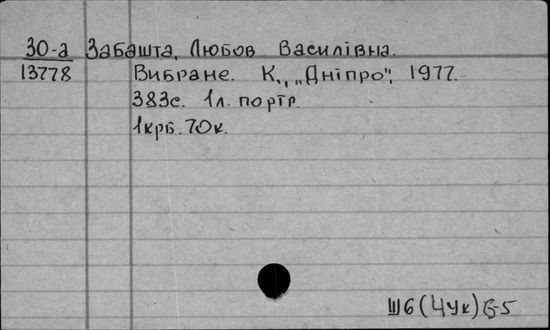 30-а Забашта, Любов Василівна.
13778 Вибране. К., „Дніпро", 1977.
383с. 1л. портр.
1крб. 70к.
Ш6(4Ук)6-5